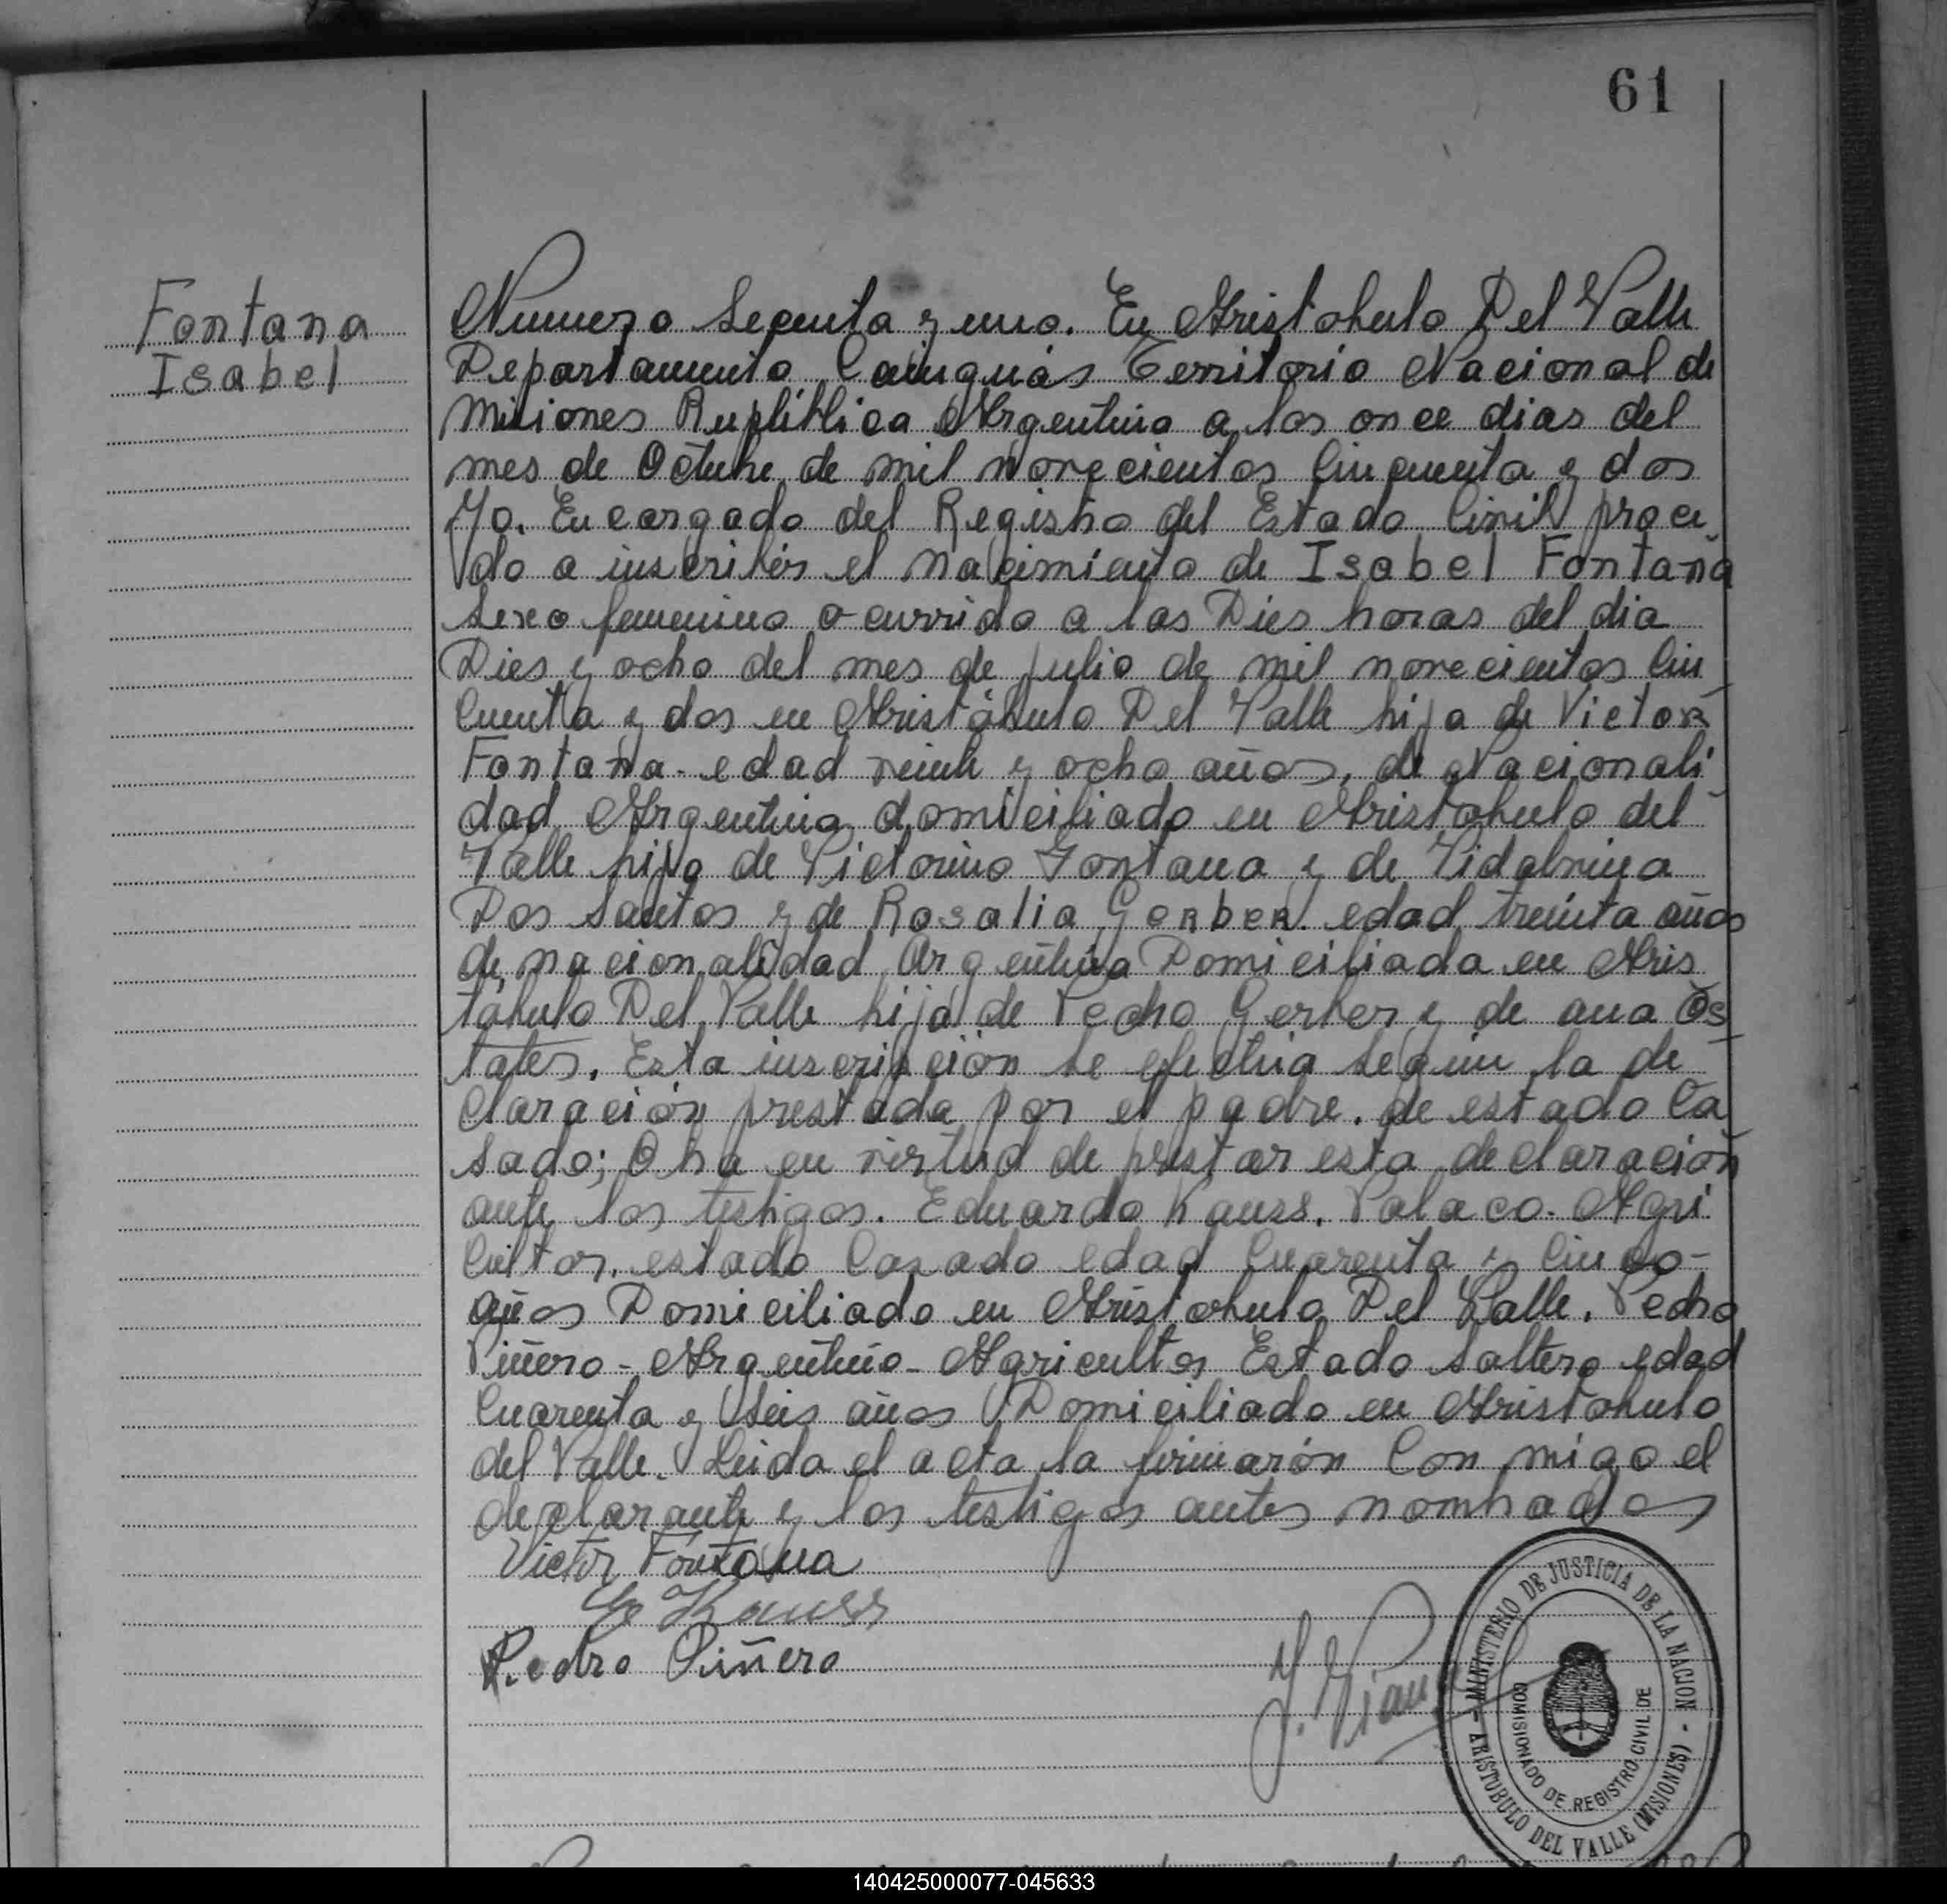 61
Fontana
Isabel
Numero Secenta y uno. En Aristobulo Del Valle
Departamento Cainguás Territorio Nacional de
Misiones República Argentina a los once dias del
mes de Octubre de mil novecientos Cincuenta y dos
Yo. Encargado del Registro del Estado Civil proce
do a inscribir el nacimiento de Isabel Fontana
Sexo femenino ocurrido a las Dies horas del dia
Dies y ocho del mes de julio de mil novecientos Cin
cuenta y dos en Aristóbulo Del Valle hija de Victor
Fontana. edad veinte y ocho años, de Nacionali
dad Argentina domiciliado en Aristobulo del
Valle hijo de Victorino Fontana y de Vidalvina
Dos Santos y de Rosalia Gerber. edad treinta años
de nacionalidad Argentina Domiciliada en Aris
tobulo Del Valle hija de Pedro Gerber y de ana Os
tates. Esta inscripción se efectúa según la de
claración prestada por el padre. de estado Ca
sado; Oba en virtud de prestar esta declaración
ante los testigos. Eduardo Kauss. Polaco. Agri
cultor. estado Casado edad Cuarenta y Cinco-
años Domiciliado en Aristobulo Del Valle. Pedro
Piñero - Argentino - Agricultor Estado Soltero edad
Cuarenta y Seis años Domiciliado en Aristobulo
del Valle. Leida el acta la firmarón Con migo el
declarante y los testigos antes nombrados
Victor Fontana
E Kauss
Pedro Piñero
MINISTERIO DE JUSTICIA DE LA NACION - ARISTOBULO DEL VALLE (MISIONES) -
COMISIONADO DE REGISTRO CIVIL DE
140425000077-045633